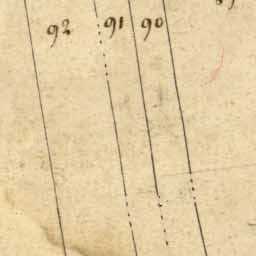 92 91 90